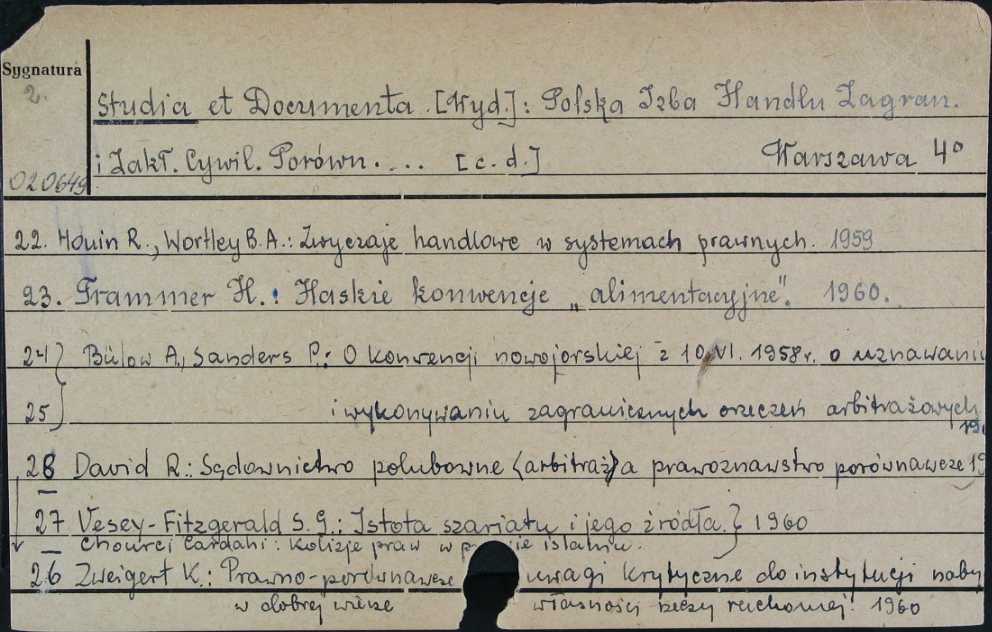 Sygnatura
2.
Studia et Documenta. [Wyd.]: Polska Izba Handlu Zagran.
i Zakł. Cywil. Porówn. ... [c. d.] Warszawa 4°
020649
22. Houin R., Wortley B. A.: Zwyczaje handlowe w systemach prawnych. 1959
23. Trammer H.: Haskie konwencje „alimentacyjne". 1960.
24} Bülow A., Sanders P.: O konwencji nowojorskiej z 10.VI. 1958 r. o uznawaniu
25} i wykonywaniu zagranicznych orzeczeń arbitrażowych
19
28 David R.: Sądownictwo polubowne (arbitraż) a prawoznawstwo porównawcze 19
27 Vesey-Fitzgerald S. G.: Istota szariatu i jego źródła.} 1960
Chourci Cardahi: Kolizje praw w islamu.
26 Zweigert K.: Prawno-porównawcze uwagi krytyczne do instytucji naby
w dobrej wierze własności rzeczy ruchomej. 1960